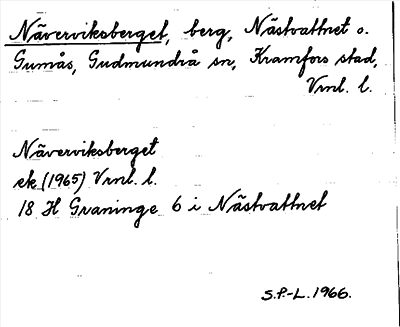 Näverviksberget, berg, Nästvattnet o.
Gumås, Gudmundrå sn, Kramfors stad,
Vrnl. l.
Näverviksberget
ek (1965) Vrnl. l.
18 H Graninge 6 i Nästvattnet
S.P.-L. 1966.